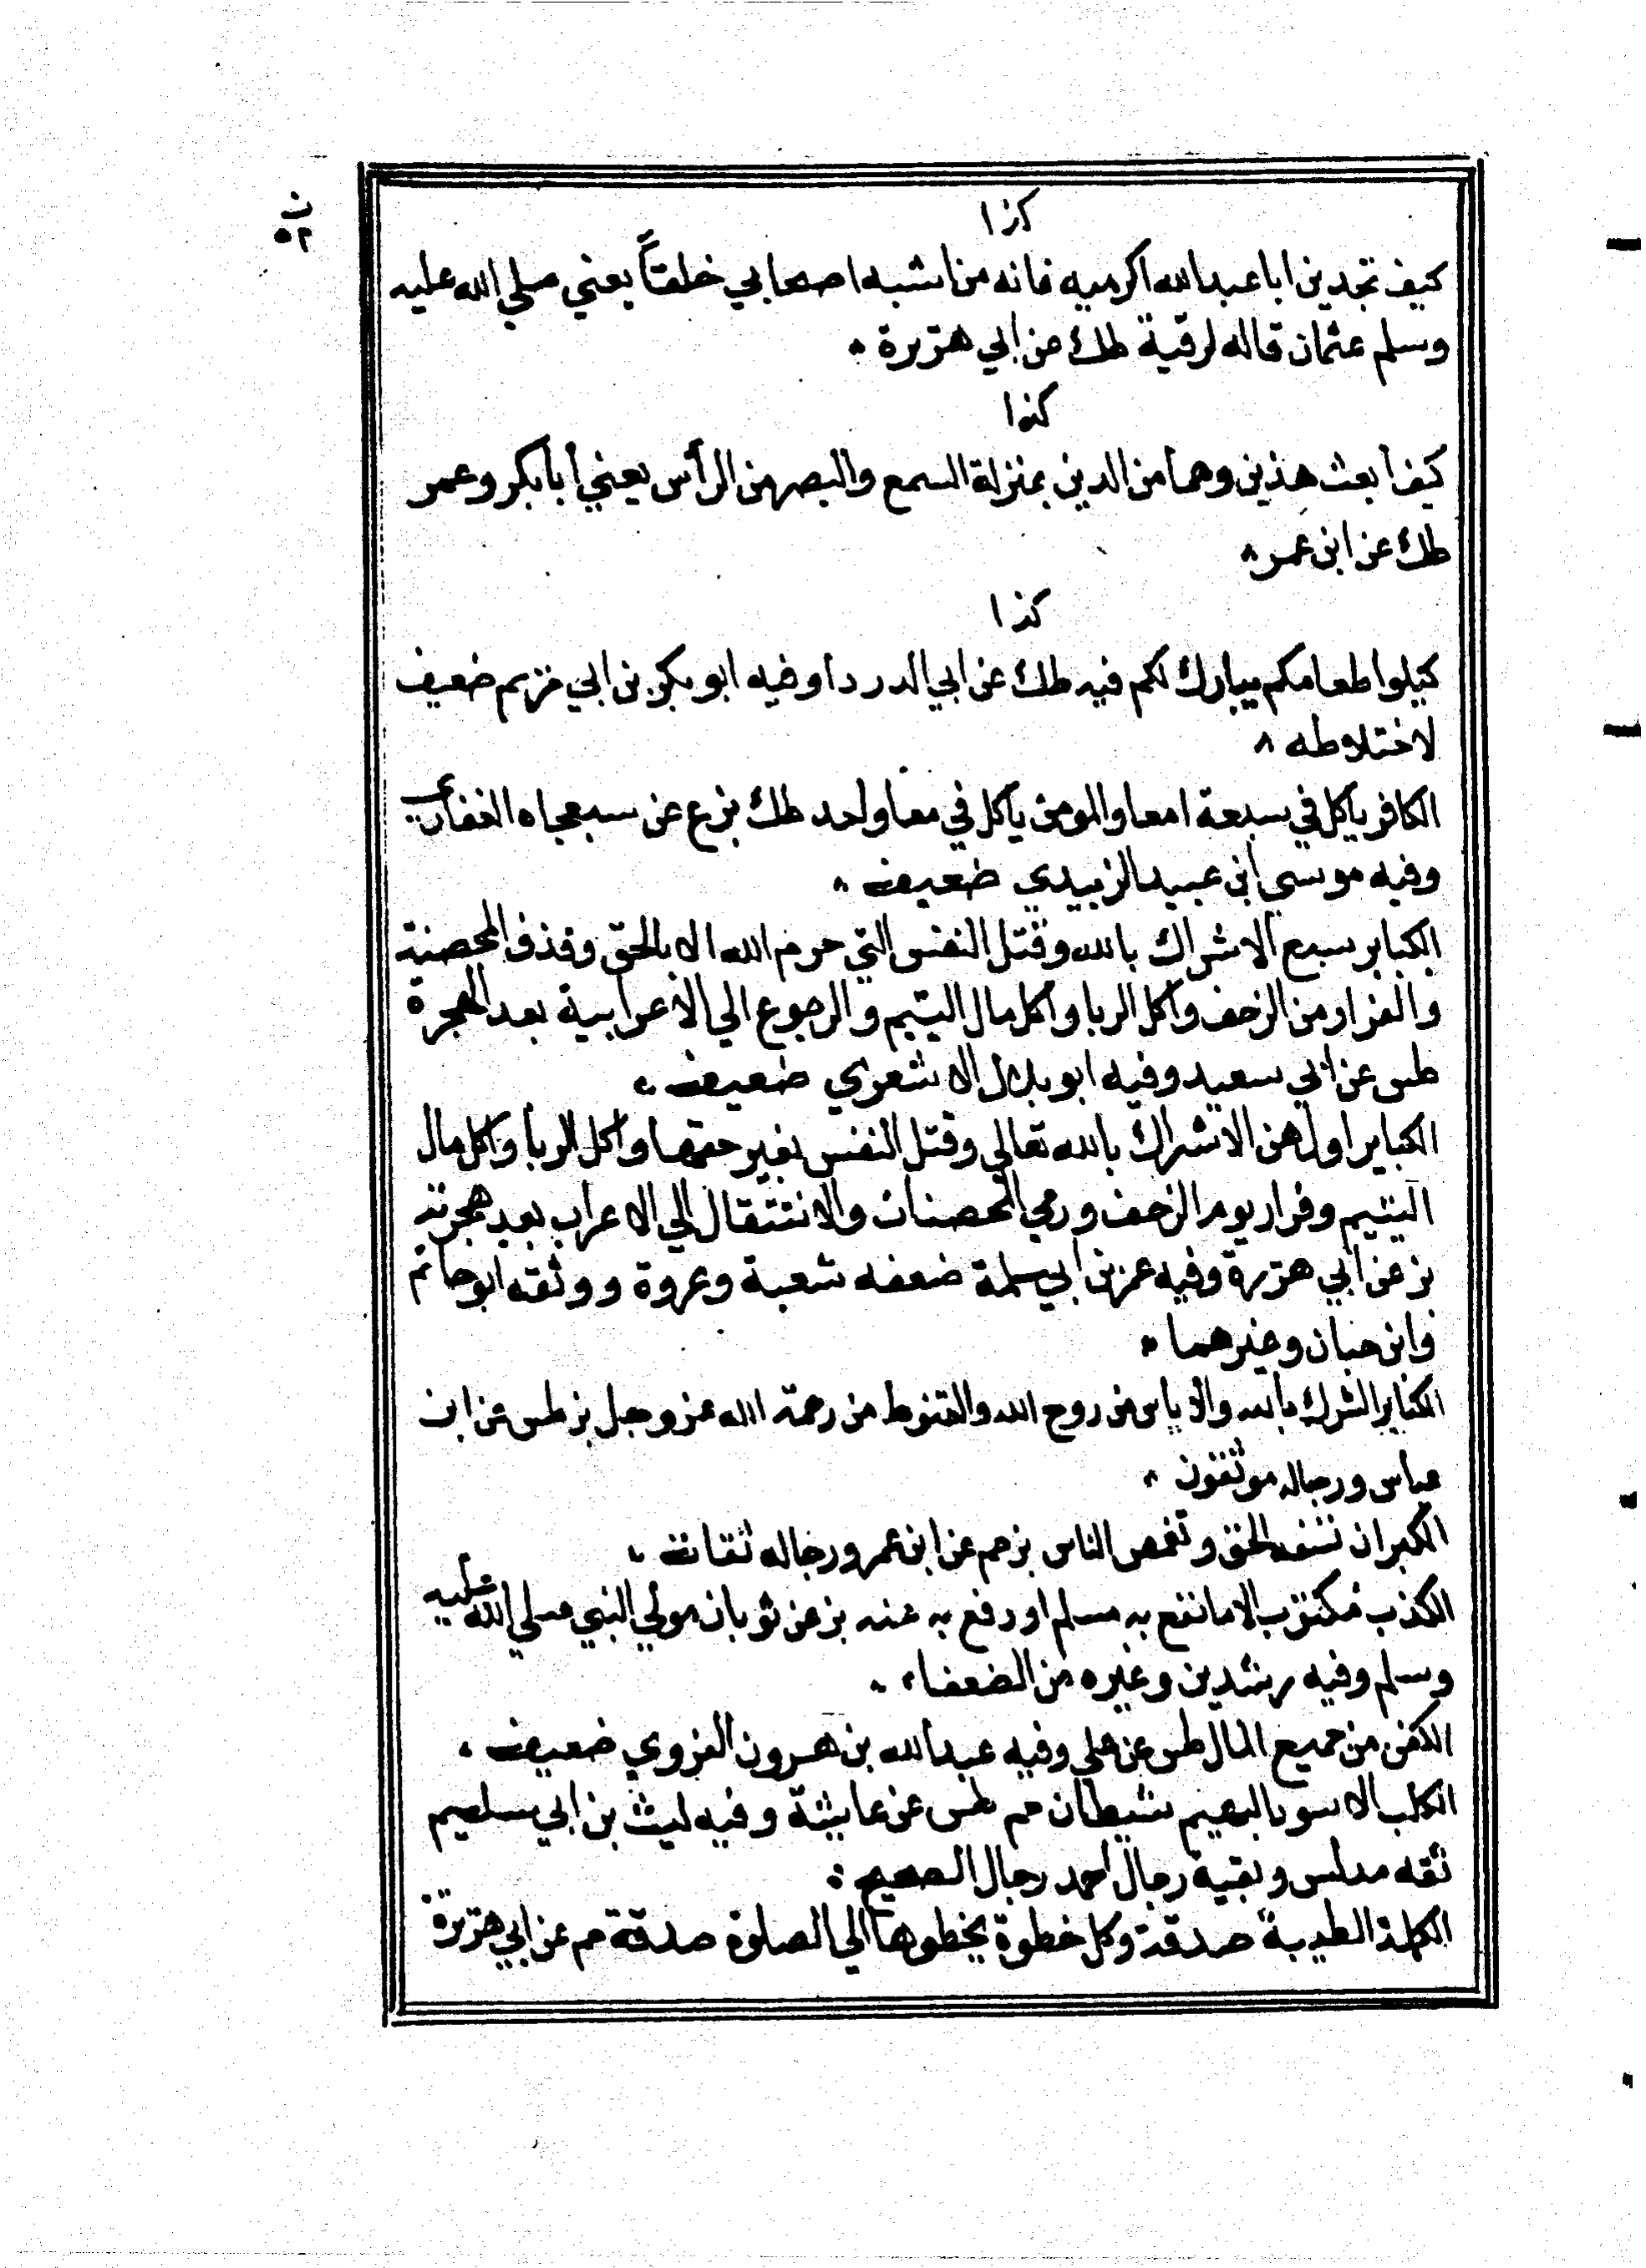 كذا
كيف تجدين ابا عبد الله اكرميه فانه من اشبه اصحابي خلقاً يعني صلي الله عليه
وسلم عثمان قاله لرقية طك عن ابي هريرة
كذا
كيف أبعث هذين وهما من الدين بمنزلة السمع والبصر من الرأس يعني أبا بكر وعمر
طك عن ابن عمر
كذا
كيلوا طعامكم يبارك لكم فيه طك عن ابي الدرداء وفيه ابو بكر بن ابي مريم ضعيف
لاختلاطه
الكافر ياكل في سبعة امعا والمومن ياكل في معا واحد طك بز ع عن الغفاري
وفيه موسي ابن عبيد الزبيدي ضعيف
الكباير سبع الاشراك بالله وقتل النفس التي حرم الله الا بالحق وقذف المحصنة
والفرار من الزحف واكل الربا واكل مال اليتيم والرجوع الي الاعرابية بعد الهجرة
طس عن ابي سعيد وفيه ابو بلال الاشعري ضعيف
الكباير اولهن الاشراك بالله تعالي وقتل النفس بغير حقها واكل الربا واكل مال
اليتيم وفرار يوم الزحف ورمي المحصنات والانتقال الي الاعراب بعد هجرته
بز عن ابي هريرة وفيه عمر بن ابي سلمة ضعفه شعبة وغيره ووثقه ابو حاتم
وابن حبان وغيرهما
الكباير الشرك بالله والاياس من روح الله والقنوط من رحمة الله عز وجل بز طس عن ابن
عباس ورجاله موثقون
الكبر ان تسفه الحق وتغمص الناس بز حم عن ابن عمر ورجاله ثقات
الكذب مكتوب الا ما نفع به مسلم او رفع به عنه بز عن ثوبان مولي النبي صلي الله عليه
وسلم وفيه رشدين وغيره من الضعفاء
الكفن من جميع المال طس عن علي وفيه عبد الله بن هرون الفروي ضعيف
الكلب الاسود البهيم شيطان حم طس عن عايشة وفيه ليث بن ابي سليم
ثقه مدلس وبقية رجال احمد رجال الصحيح
الكلمة الطيبة صدقة وكل خطوة يخطوها الي الصلوة صدقة حم عن ابي هريرة